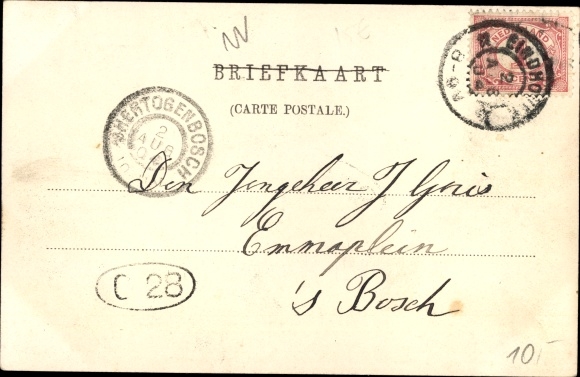 BRIEFKAART
(CARTE POSTALE.)
EINDHOVEN
'SHERTOGENBOSCH
2
AUG
Den Jongeheer J Goris
Emmaplein
's Bosch
C 28
10,-